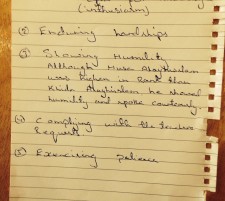 (enthusiasm)
(2) Enduring hardships
(3) Showing Humility
Although Musa Alayhissalam
was higher in Rank than
Khidr Alayhissalam, he showed
humility and spoke courteously.
(4) Complying with the teachers
Requests
(5) Exercising patience